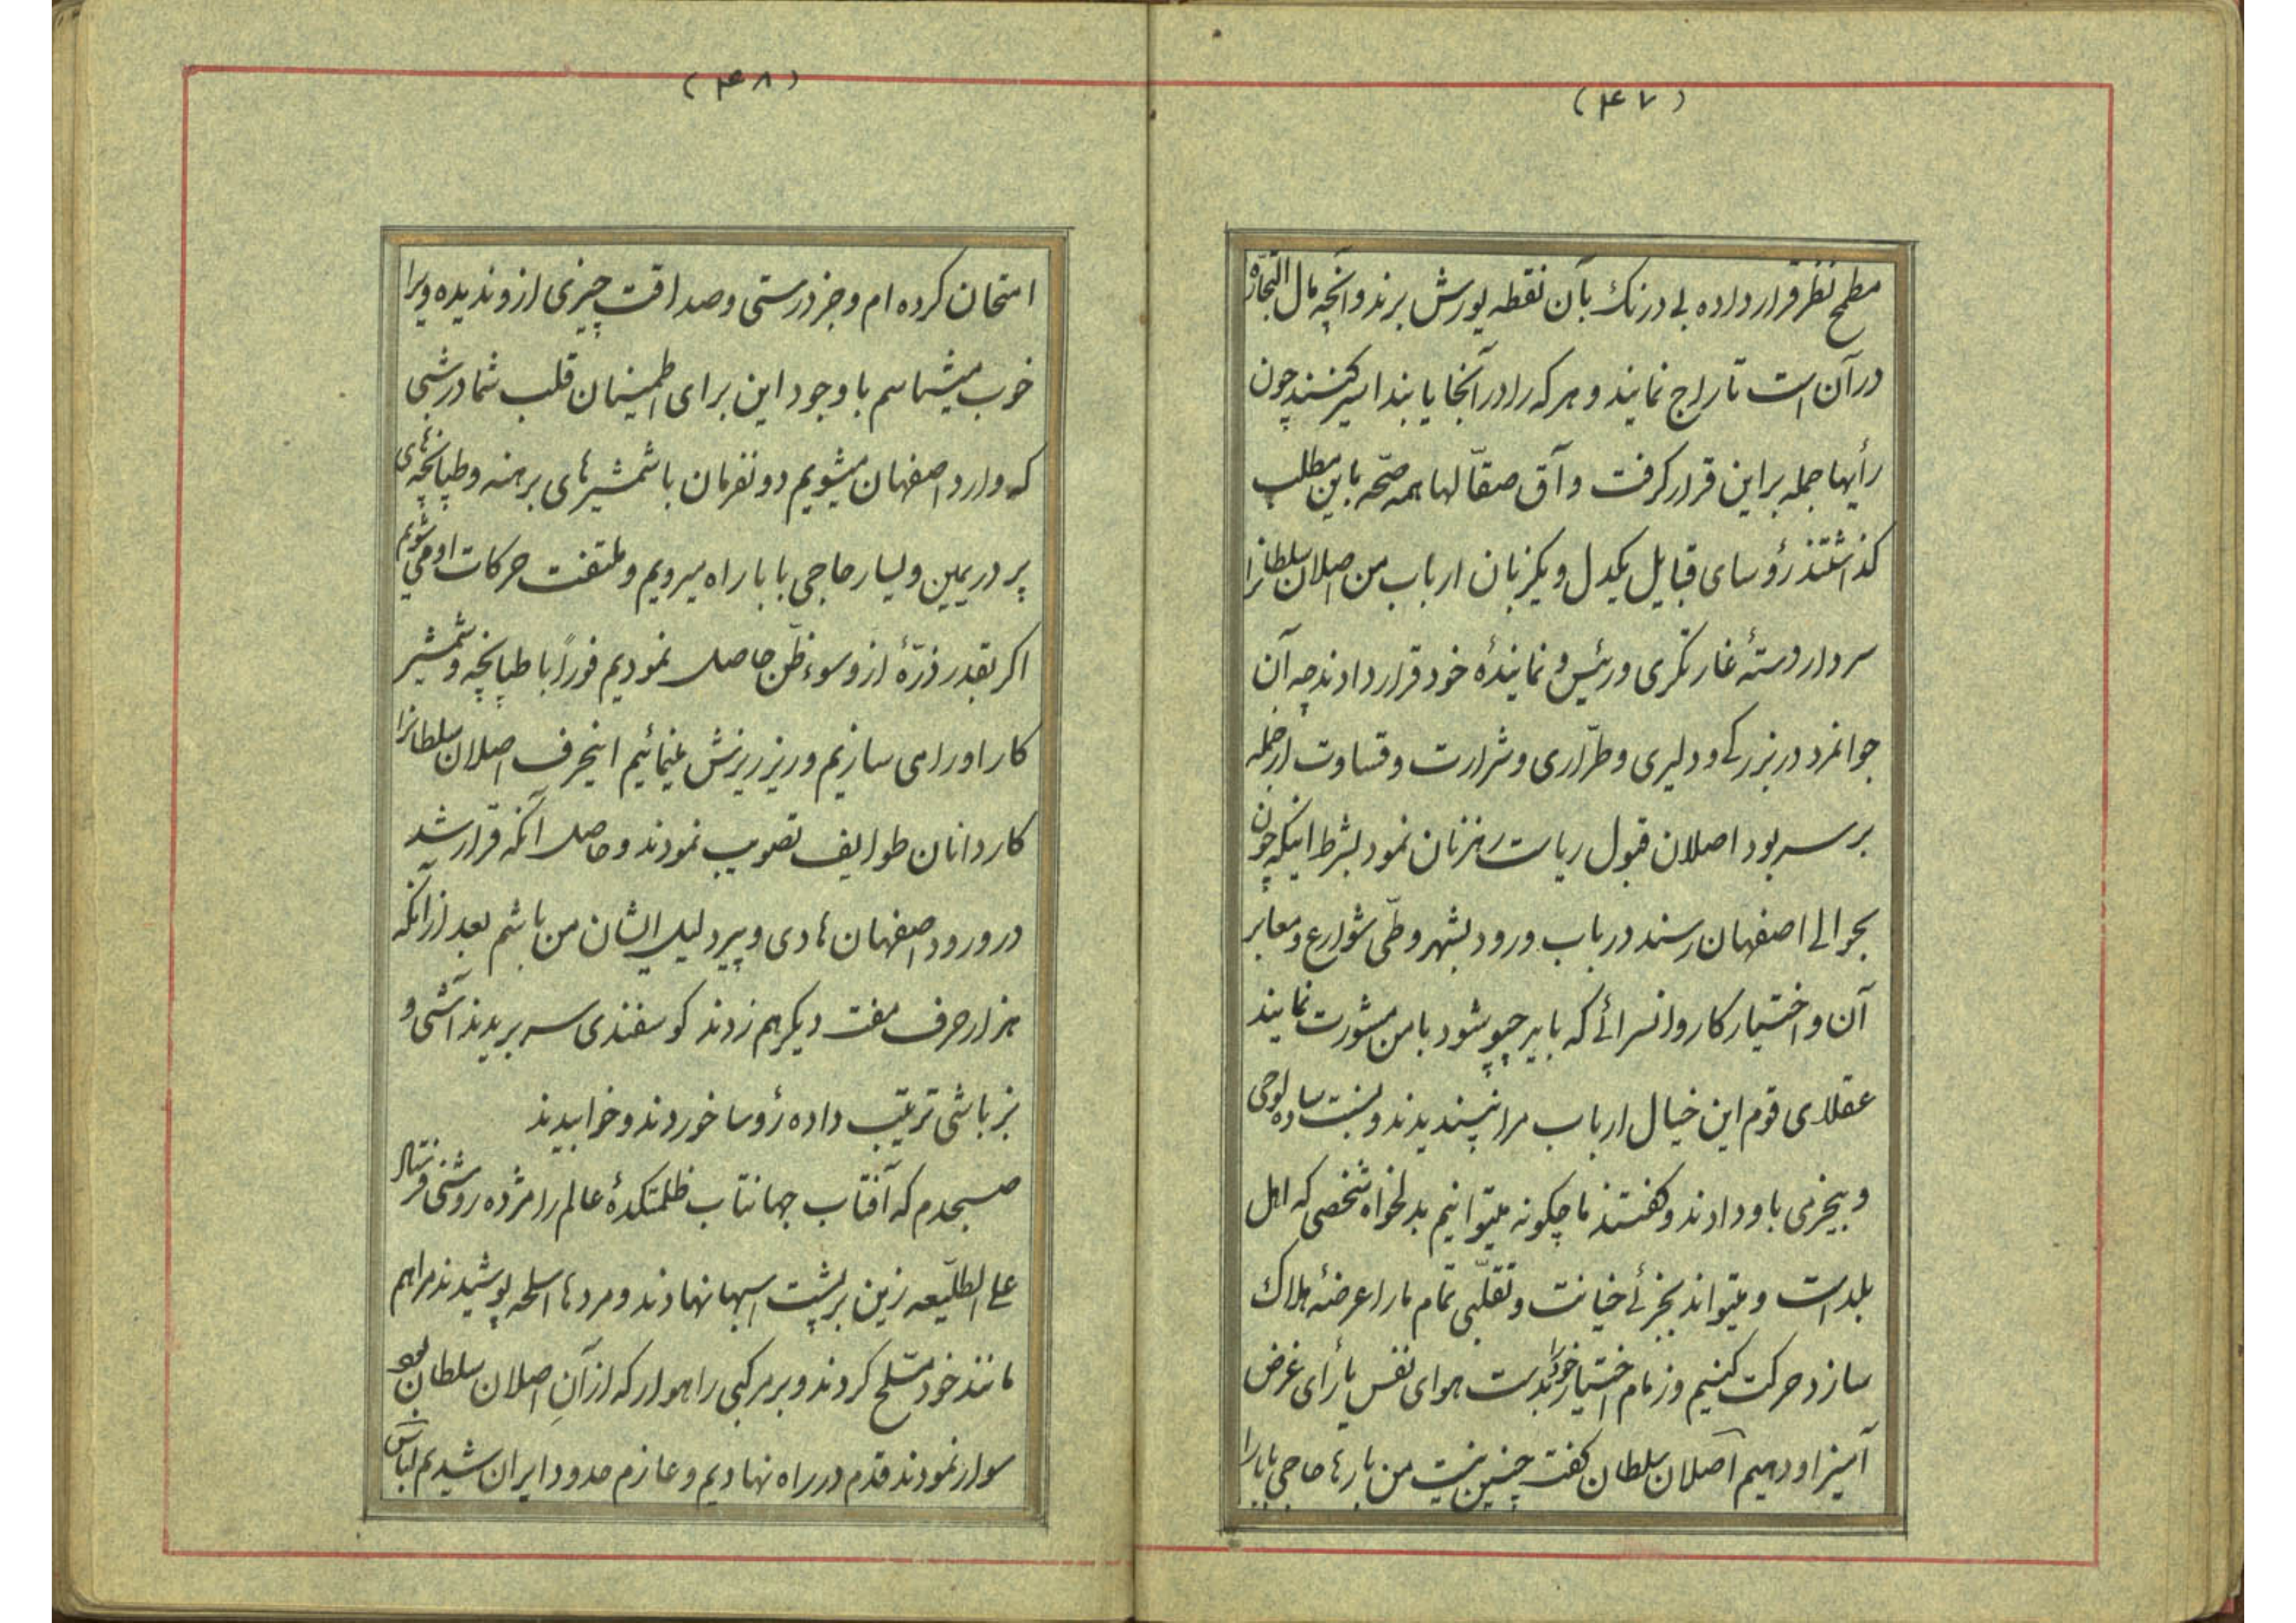 (۴۷)
مطمح نظر قرار داده بی درنك بآن نقطه یورش برند و آنچه مال التجاره
در آن است تاراج نمایند و هر که را در آنجا یابند اسیر کنند چون
رأیها جمله بر این قرار کرفت و آق صقّالها همه صحّه باین مطلب
کذاشتند رؤسای قبایل یکدل و یکزبان ارباب من اصلان سلطانرا
سردار دستهٔ غارتکری و رئیس و نمایندهٔ خود قرار دادند چه آن
جوانمرد در بزرکی و دلیری و طرّاری و شرارت و قساوت از جمله
بر سر بود اصلان قبول ریاست رهزنان نمود بشرط اینکه چون
بحوالی اصفهان رسند در باب ورود بشهر و طی شوارع و معابر
آن و اختیار کاروانسرائی که باید چپو بشود با من مشورت نمایند
عقلای قوم این خیال ارباب مرا نپسندیدند و نسبت ساده لوحی
و بیخردی باو دادند و کفتند ما چکونه میتوانیم بدلخواه شخصی که اهل
بلد است و میتواند بجزئی خیانت و تقلّبی تمام ما را عرضهٔ هلاك
سازد حرکت کنیم و زمام اختیار خود را بدست هوای نفس یا رأی غرض
آمیز او دهیم اصلان سلطان کفت چنین نیست من بارها حاجی بابا را
(۴۸)
امتحان کرده ام و جز درستی و صداقت چیزی از او ندیده ویرا
خوب میشناسم با وجود این برای اطمینان قلب شما در شبی
که وارد اصفهان میشویم دو نفرمان با شمشیرهای برهنه و طپانچه های
پر در یمین و یسار حاجی بابا راه میرویم و ملتفت حرکات او می شویم
اکر بقدر ذرّهٔ از او سوء ظن حاصل نمودیم فوراً با طپانچه و شمشیر
کار او را می سازیم و ریز ریزش مینمائیم اینحرف اصلان سلطانرا
کاردانان طوایف تصویب نمودند و حاصل آنکه قرار شد
در ورود اصفهان هادی و پیر دلیل ایشان من باشم بعد از آنکه
هزار حرف مفت دیکر هم زدند کوسفندی سر بریدند آشی و
بزباشی ترتیب داده رؤسا خوردند و خوابیدند
صبحدم که آفتاب جهانتاب ظلمتکدهٔ عالم را مژده روشنی فرستاد
علی الطلّیعه زین بر پشت اسبها نهادند و مردها اسلحه پوشیدند مرا هم
مانند خود مسلّح کردند و بر مرکبی راهوار که از آنِ اصلان سلطان بود
سوار نمودند قدم در راه نهادیم و عازم حدود ایران شدیم لباس